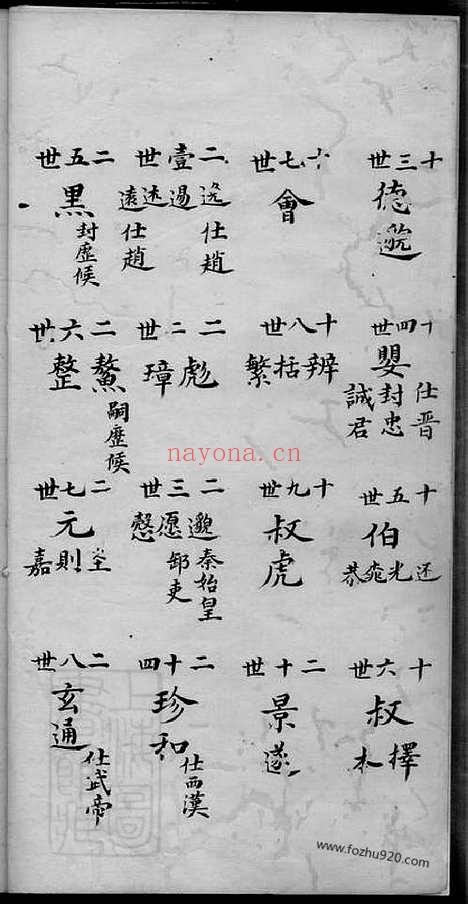 十三世
德邈
十四世
嬰
仕晋
封忠
誠君
十五世
伯
还
光
恭
十六世
叔
擇
本
十七世
會
十八世
辨
括
繁
十九世
叔虎
二十世
景遂
二壹世
逸仕趙
逷
逺仕趙
二二世
彪
璋
二三世
邈秦始皇
愿部吏
慇
二十四
珍和
仕西漢
二五世
黑
封歷候
二六世
鰲
嗣歷候
整
二七世
元
則
嘉
二八世
玄通
仕武帝
nayona.cn
www.fozhu920.com